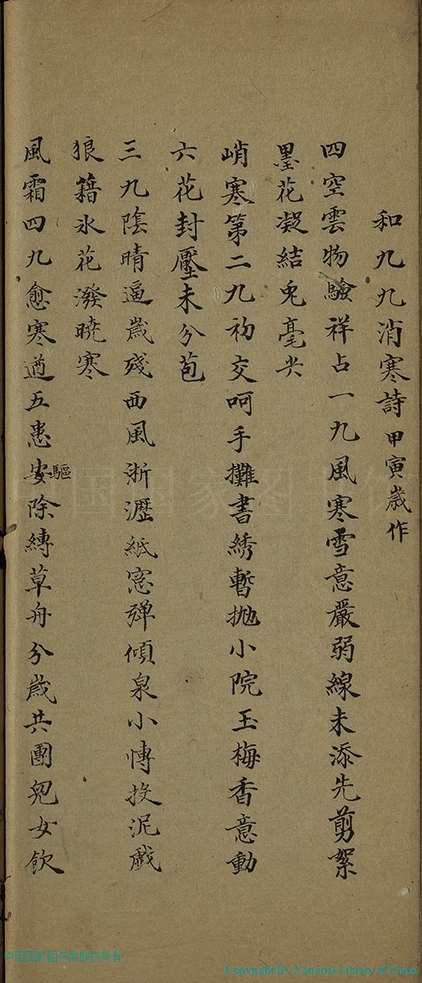 和九九消寒詩 甲寅歲作
四空雲物驗祥占一九風寒雪意嚴弱線未添先剪絮
墨花凝結兎毫尖
峭寒第二九初交呵手攤書綉暫拋小院玉梅香意動
六花封壓未分苞
三九陰晴逼歲殘西風淅瀝紙窓彈傾泉小慱投泥戲
狼籍氷花潑曉寒
風霜四九愈寒遒五患安除縛草舟分歲共團兒女飲
驅
Copyright By National Library of China